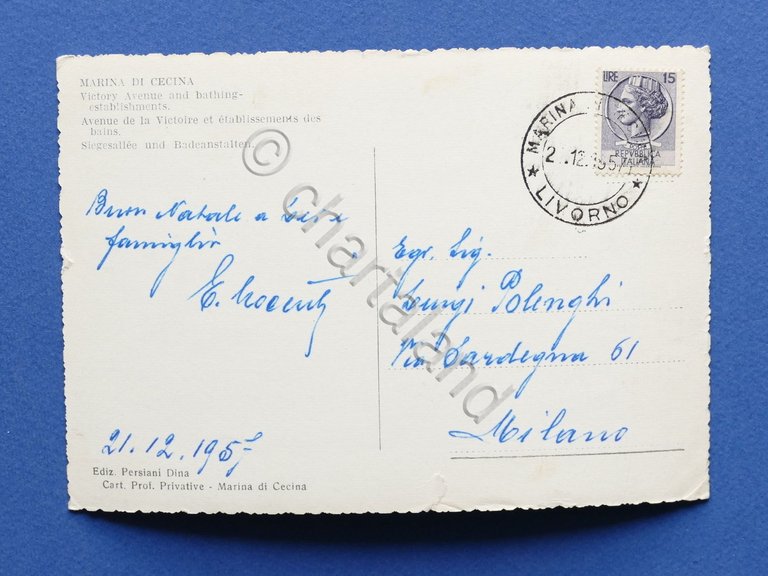 MARINA DI CECINA
Victory Avenue and bathing-
establishments.
Avenue de la Victoire et établissements des
bains.
Siegesallée und Badeanstalten.
LIRE 15
REPVBBLICA
ITALIANA
MARINA
12.195
LIVORNO
Buon Natale a
famiglia
E.
21.12.1957
Egr. Sig.
Luigi Polenghi
Via Sardegna 61
Milano
Ediz. Persiani Dina
Cart. Prof. Privative - Marina di Cecina
© chartaland